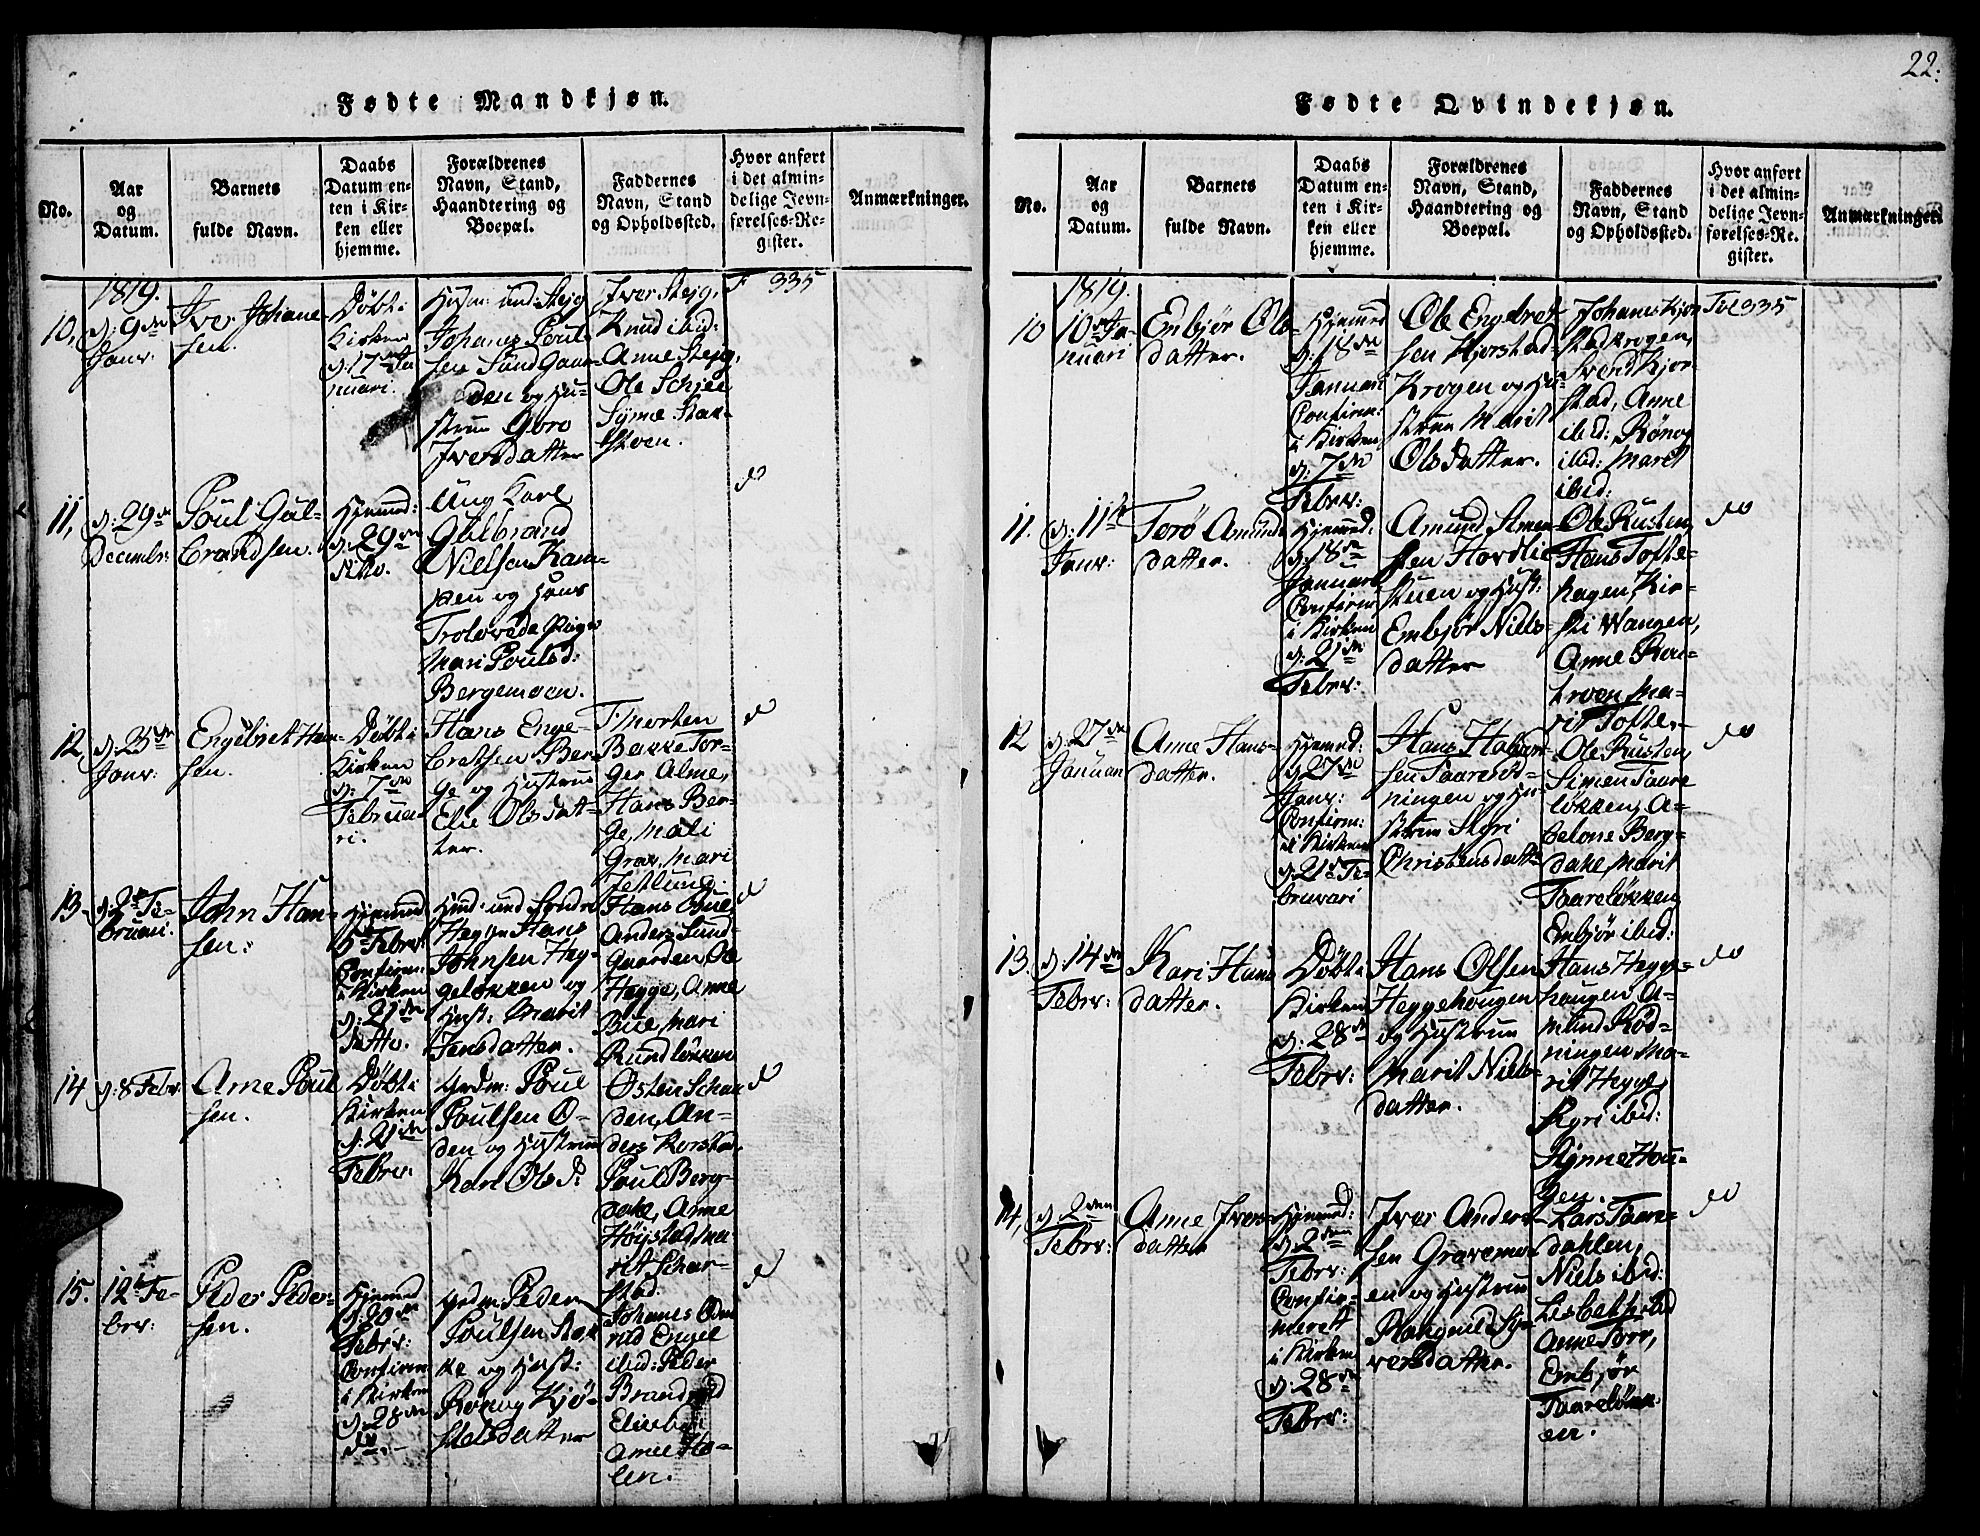 22.
Fødte Mandkjøn.
No.
Aar
og
Datum.
Barnets
fulde Navn.
Daabs
Datum en-
ten i Kir-
ken eller
hjemme.
Forældrenes
Navn, Stand,
Haandtering og
Boepæl.
Faddernes
Navn, Stand
og Opholdssted.
Hvor anført
i det almin-
delige Jevn-
førelses-Re-
gister.
Anmærkninger.
1819.
10,
d: 9de
Janr:
Iver Johane-
sen.
Døbt i
Kirken
d: 17de Ja
nuari.
Huusm: und: Stejg
Johanes Poul
sen Sundgaar-
den og Hu-
strue Goro
Iversdatter
Iver Stejg,
Knud ibid:
Anne Stejg,
Ole Schjee
Syme
F 335
11,
d: 29de
Decembr:
Poul Gul-
brandsen.
Hjemmed:
d: 29de
Ung Karl
Gulbrand
Nielsen Kam-
pen og Hans
Trolovede Pige
Mari Poulsd:
Bergemoen.
do
12,
d: 23de
Janr:
Engebret Han-
sen.
Døbt i
Kirken
d: 7de
Februa-
ri.
Hans Enge-
bretsen Ber-
ge og Hustrue
Elie Olsdat-
ter.
Morten
Bakke Tor-
ger Alme,
Hans Ber-
ge, Mali
Grav, Mari
Jetlund.
do
13.
d: 2de Fe-
bruari.
John Han-
sen.
Hjemmed
5te Febr:
Confirm:
i Kirken
d: 21de
Ditto.
Huusm: und Søndre
Hegge Hans
Johnsen Heg-
geløkken og
Hust: Marit
Jensdatter.
Hans Bue,
Anders Sund-
gaarden, Ole
Hegge, Anne
Bue, Mari
Rundløkken
do
14
d: 8 Febr:
Arne Poul
sen.
Døbt i
Kirken
d: 21de
Febr:
Grdm: Poul
Poulsen O-
den og Hustrue
Kari Olsd:
Østen Schau
den, An-
ders Korstad
Poul Berg-
dale, Anne
Høystad, Ma
rit Schar-
stad.
do
15.
12te Fe-
brr:
Peder Peder-
sen.
Hjemmed
d: 20de
Febr:
Confirm
i Kirken
d: 28de
do.
Grdm: Peder
Poulsen Bak
ke og Hust:
Ronog Kjø-
stelsdatter
Johanes
Engel
ibid: Peder
Anne Ho-
len.
do
Fødte Qvindekjøn.
No.
Aar
og
Datum.
Barnets
fulde Navn.
Daabs
Datum en-
ten i Kir-
ken eller
hjemme.
Forældrenes
Navn, Stand,
Haandtering og
Boepæl.
Faddernes
Navn, Stand
og Opholdssted.
Hvor anført
i det almin-
delige Jevn-
førelses-Re-
gister.
Anmærkninger.
1819.
10
10de Ja-
nuari
Embjør Ols-
datter.
Hjemmed
d: 18de
Januari
Confirm:
i Kirken
d: 7de
Febr:
Ole Engebret-
sen Kjorstad-
Krogen og Hu-
strue Marit
Olsdatter.
Johans Kjor
stadkrogen,
Svend Kjor-
stad, Anne
ibid: Rønog
ibid: Maret
ibid:
Fol 335
11.
d: 11te
Janr:
Torø Amunds
datter.
Hjemmed:
d: 18de
Januari
Confirm:
i Kirken
d: 21de
Febr:
Amund Simen-
sen Hovdlie-
stuen og Hust:
Embjør Niels-
datter
Ole Rusten,
Hans Tofte-
hagen, Kir-
sti Wangen,
Anne Ron-
troen, Ma-
rit Tofte.
do
12
d: 27de
Januari
Anne Hans-
datter.
Hjemmed:
d: 27de
Janr:
Confirm:
i Kirken
d: 21de Fe-
bruari
Hans Halvor-
sen Taarerød-
ningen og Hu-
strue Skyri
Christensdatt:
Ole Rusten,
Simen Taare
løkken, A-
belone Berg-
dale, Marit
Taareløkken,
Embjør ibid:
do
13.
d: 14de
Febr:
Kari Hans
datter.
Døbt i
Kirken
d: 28de
Febr:
Hans Olsen
Heggehougen
og Hustrue
Marit Niels-
datter.
Hans Hegge-
haugen, A-
mund Rød-
ningen, Ma-
rit Hegge,
Skyri ibid:
Synne Hou-
gen.
do
14,
d: 2den
Febr:
Anne Ivers-
datter
Hjemmed:
d: 2den
Febr:
Confir-
meret
i Kirken
d: 28de
Febr:
Iver Ander-
sen Gravemo-
en og Hustrue
Rangnild Sy-
versdatter.
Lars Taare-
dahlen,
Niels ibid:
Lisbeth ibid
Anne Torv,
Embjør
Taareløkk-
en.
do